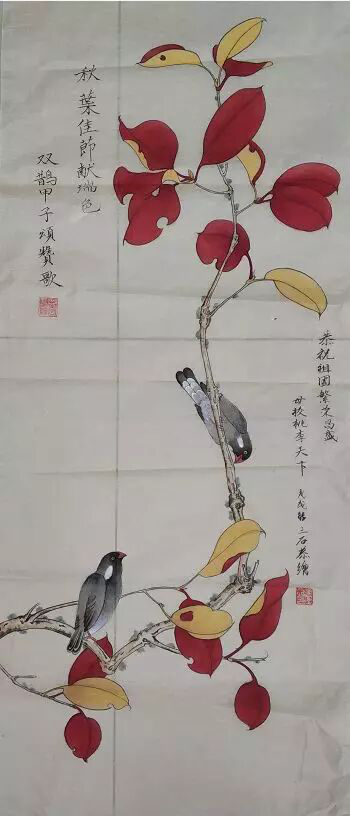 秋葉佳節献瑞色
双鹊甲子頌贊歌
恭祝祖国繁荣昌盛
母校桃李天下
戊戌 三石恭繪